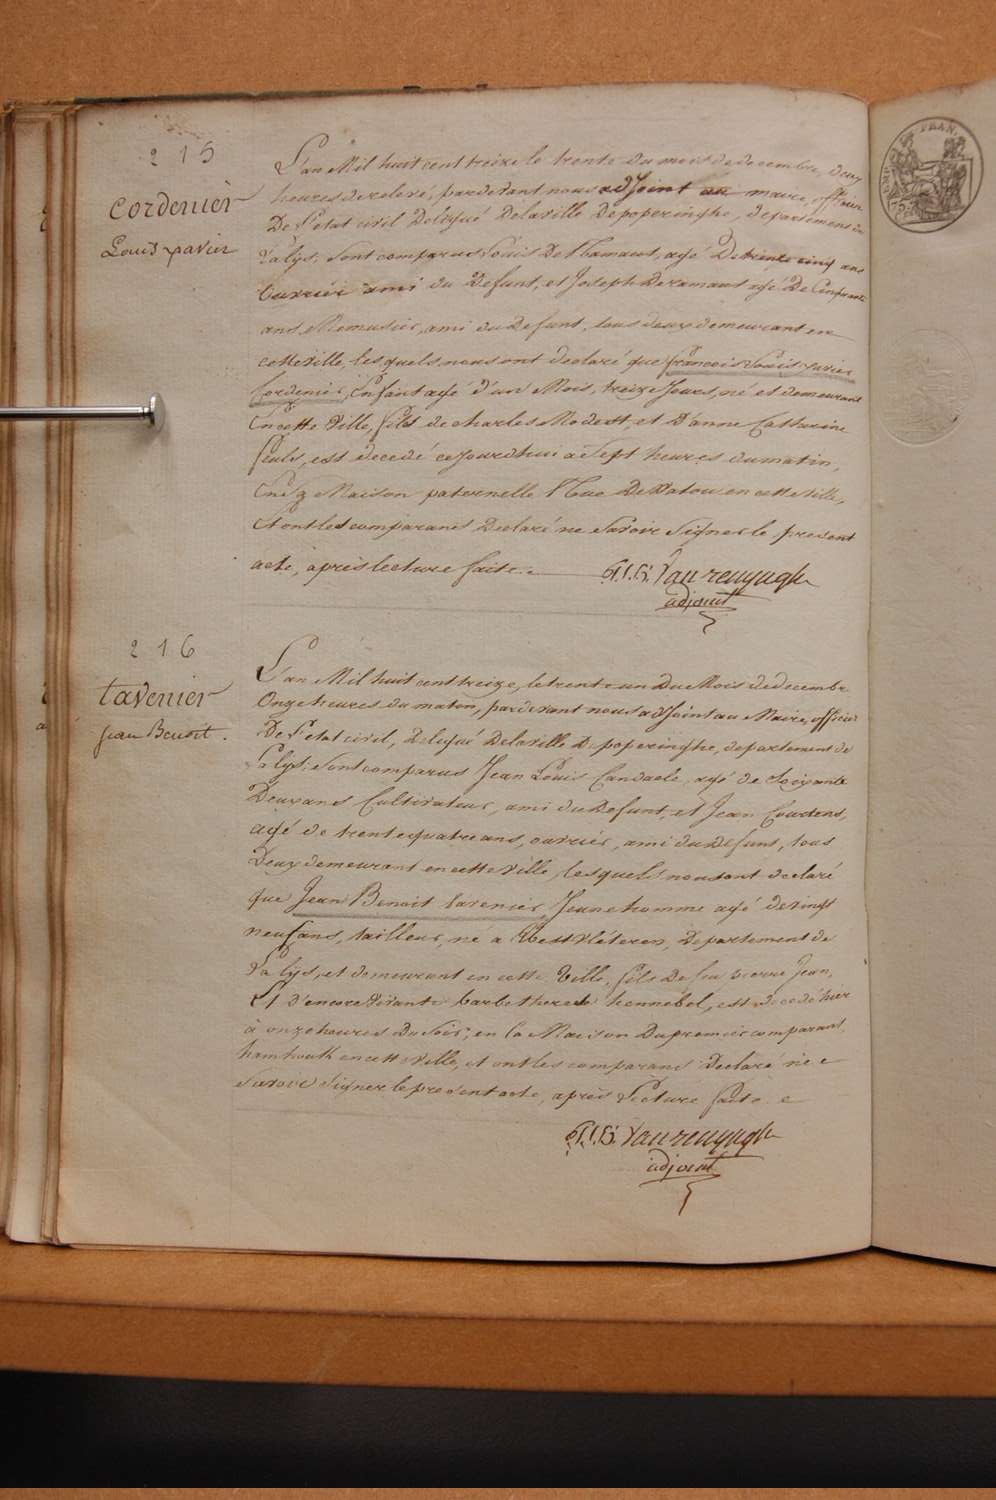 215
Cordenier
Louis xavier
L'an Mil huit cent treize le trente du mois de decembre, deux
heures de relevé, pardevant nous adjoint au maire, officier
De l'etat civil Délégué Delaville De poperinghe, departement de
Lalys; Sont comparus Louis De Hamaut, agé De trente cinq ans
Ouvrier ami du Defunt, et Joseph Deramaut agé De Cinquante
ans, Menusier, ami du Defunt, tous deux demeurant en
cette ville, les quels nous ont declaré que francois Louis xavier
Cordenier, Enfant agé d'un Mois, treize Jours, né et demeurant
En cette Ville, fils de charles Modest, et D'anne Catharine
est decedé ce Jourdhui a Sept heures du matin,
En Sa Maison paternelle Rue De Watou en cette ville,
Et ont les comparans Declaré ne Savoir Signer le present
acte, après lecture faite.
Vanrenynghe
adjoint
216
tavenier
jean Benoit.
L'an Mil huit cent treize, le trente un Du Mois de decembre
Onze heures du matin, pardevant nous adjoint au Maire, officier
De l'etat civil, Delegué Delaville De poperinghe, departement de
Lalys; Sont comparus Jean Louis Candaele, agé de Soixante
Deux ans Cultivateur, ami du Defunt, et Jean Courtens,
agé de trente quatre ans, ouvrier, ami du Defunt, tous
Deux demeurant en cette ville, lesquels nous ont declaré
que Jean Benoit tavenier, Jeune homme agé de vingt
neuf ans, tailleur, né a West Vleteren, Departement de
Lalys, et demeurant en cette Ville, fils De feu pierre Jean,
Et D'encore Vivante barbe therese hennebel, est decedé hier
à onze heures Du Soir, en la Maison Du premier comparant,
en cette Ville, et ont les comparans Declaré ne
Savoir Signer le present acte, après Lecture faite
Vanrenynghe
adjoint